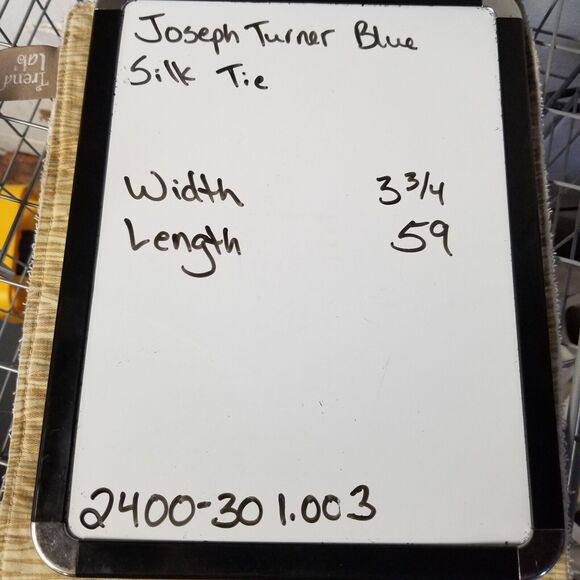 Joseph Turner Blue
Silk Tie
Width 3 3/4
Length 59
2400-301.003
Trend
lab